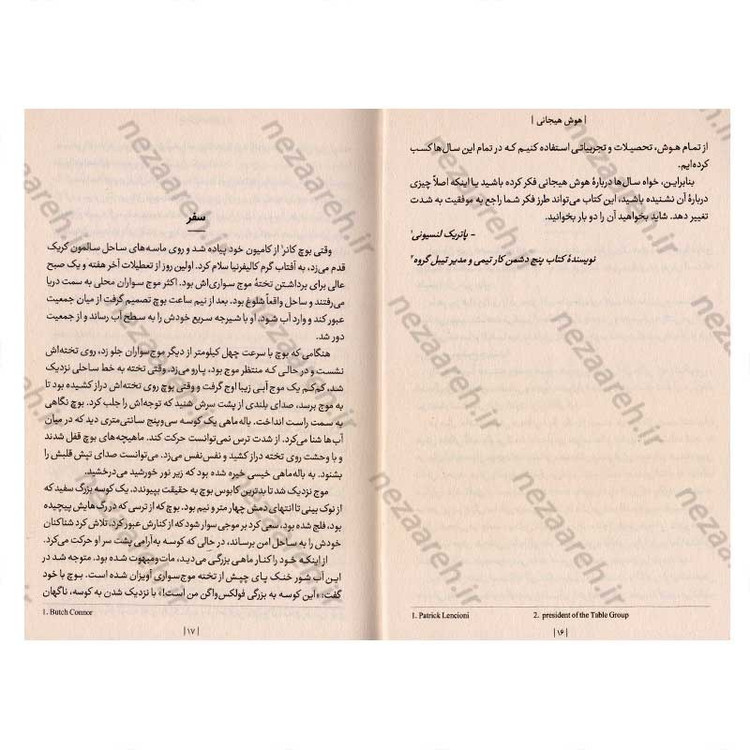 | هوش هیجانی |
از تمام هوش، تحصیلات و تجربیاتی استفاده کنیم که در تمام این سال‌ها کسب
کرده‌ایم.
بنابراین، خواه سال‌ها دربارهٔ هوش هیجانی فکر کرده باشید یا اینکه اصلاً چیزی
دربارهٔ آن نشنیده باشید، این کتاب می‌تواند طرز فکر شما راجع به موفقیت به شدت
تغییر دهد. شاید بخواهید آن را دو بار بخوانید.
- پاتریک لنسیونی¹
نویسندهٔ کتاب پنج دشمن کار تیمی و مدیر تیبل گروه²
1. Patrick Lencioni 2. president of the Table Group
| ۱۶ |
سفر
وقتی بوچ کانر¹ از کامیون خود پیاده شد و روی ماسه‌های ساحل سالمون کریک
قدم می‌زد، به آفتاب گرم کالیفرنیا سلام کرد. اولین روز از تعطیلات آخر هفته و یک صبح
عالی برای برداشتن تختهٔ موج سواری‌اش بود. اکثر موج سواران محلی به سمت دریا
می‌رفتند و ساحل واقعاً شلوغ بود. بعد از نیم ساعت بوچ تصمیم گرفت از میان جمعیت
عبور کند و وارد آب شود. او با شیرجه سریع خودش را به سطح آب رساند و از جمعیت
دور شد.
هنگامی که بوچ با سرعت چهل کیلومتر از دیگر موج‌سواران جلو زد، روی تخته‌اش
نشست و در حالی که منتظر موج بود، پارو می‌زد. وقتی تخته به خط ساحلی نزدیک
شد، کم‌کم یک موج آبی زیبا اوج گرفت و وقتی بوچ روی تخته‌اش دراز کشیده بود تا
به موج برسد، صدای بلندی از پشت سرش شنید که توجه‌اش را جلب کرد. بوچ نگاهی
به سمت راست انداخت. باله‌ماهی یک کوسه سی‌وپنج سانتی‌متری دید که در میان
آب‌ها شنا می‌کرد. از شدت ترس نمی‌توانست حرکت کند. ماهیچه‌های بوچ قفل شدند
و با وحشت روی تخته دراز کشید و نفس‌نفس می‌زد. می‌توانست صدای تپش قلبش را
بشنود. به باله‌ماهی خیسی خیره شده بود که زیر نور خورشید می‌درخشید.
موج نزدیک شد تا بدترین کابوس بوچ به حقیقت بپیوندد. یک کوسه بزرگ سفید که
از نوک بینی تا انتهای دمش چهار متر و نیم بود. بوچ که از ترسی که در رگ‌هایش پیچیده
بود، فلج شده بود، سعی کرد بر موجی سوار شود که از کنارش عبور کرد. تلاش کرد شناکنان
خودش را به ساحل امن برساند، در حالی که کوسه به‌آرامی پشت سر او حرکت می‌کرد.
از اینکه خود را کنار ماهی بزرگی می‌دید، مات‌ومبهوت شده بود. متوجه شد در
این آب شور خنک پای چپش از تخته موج‌سواری آویزان شده است. بوچ با خود
گفت: «این کوسه به بزرگی فولکس‌واگن من است!» با نزدیک شدن به کوسه، ناگهان
1. Butch Connor
| ۱۷ |
nezaareh.ir
nezaareh.ir
nezaareh.ir
nezaareh.ir
nezaareh.ir
nezaareh.ir